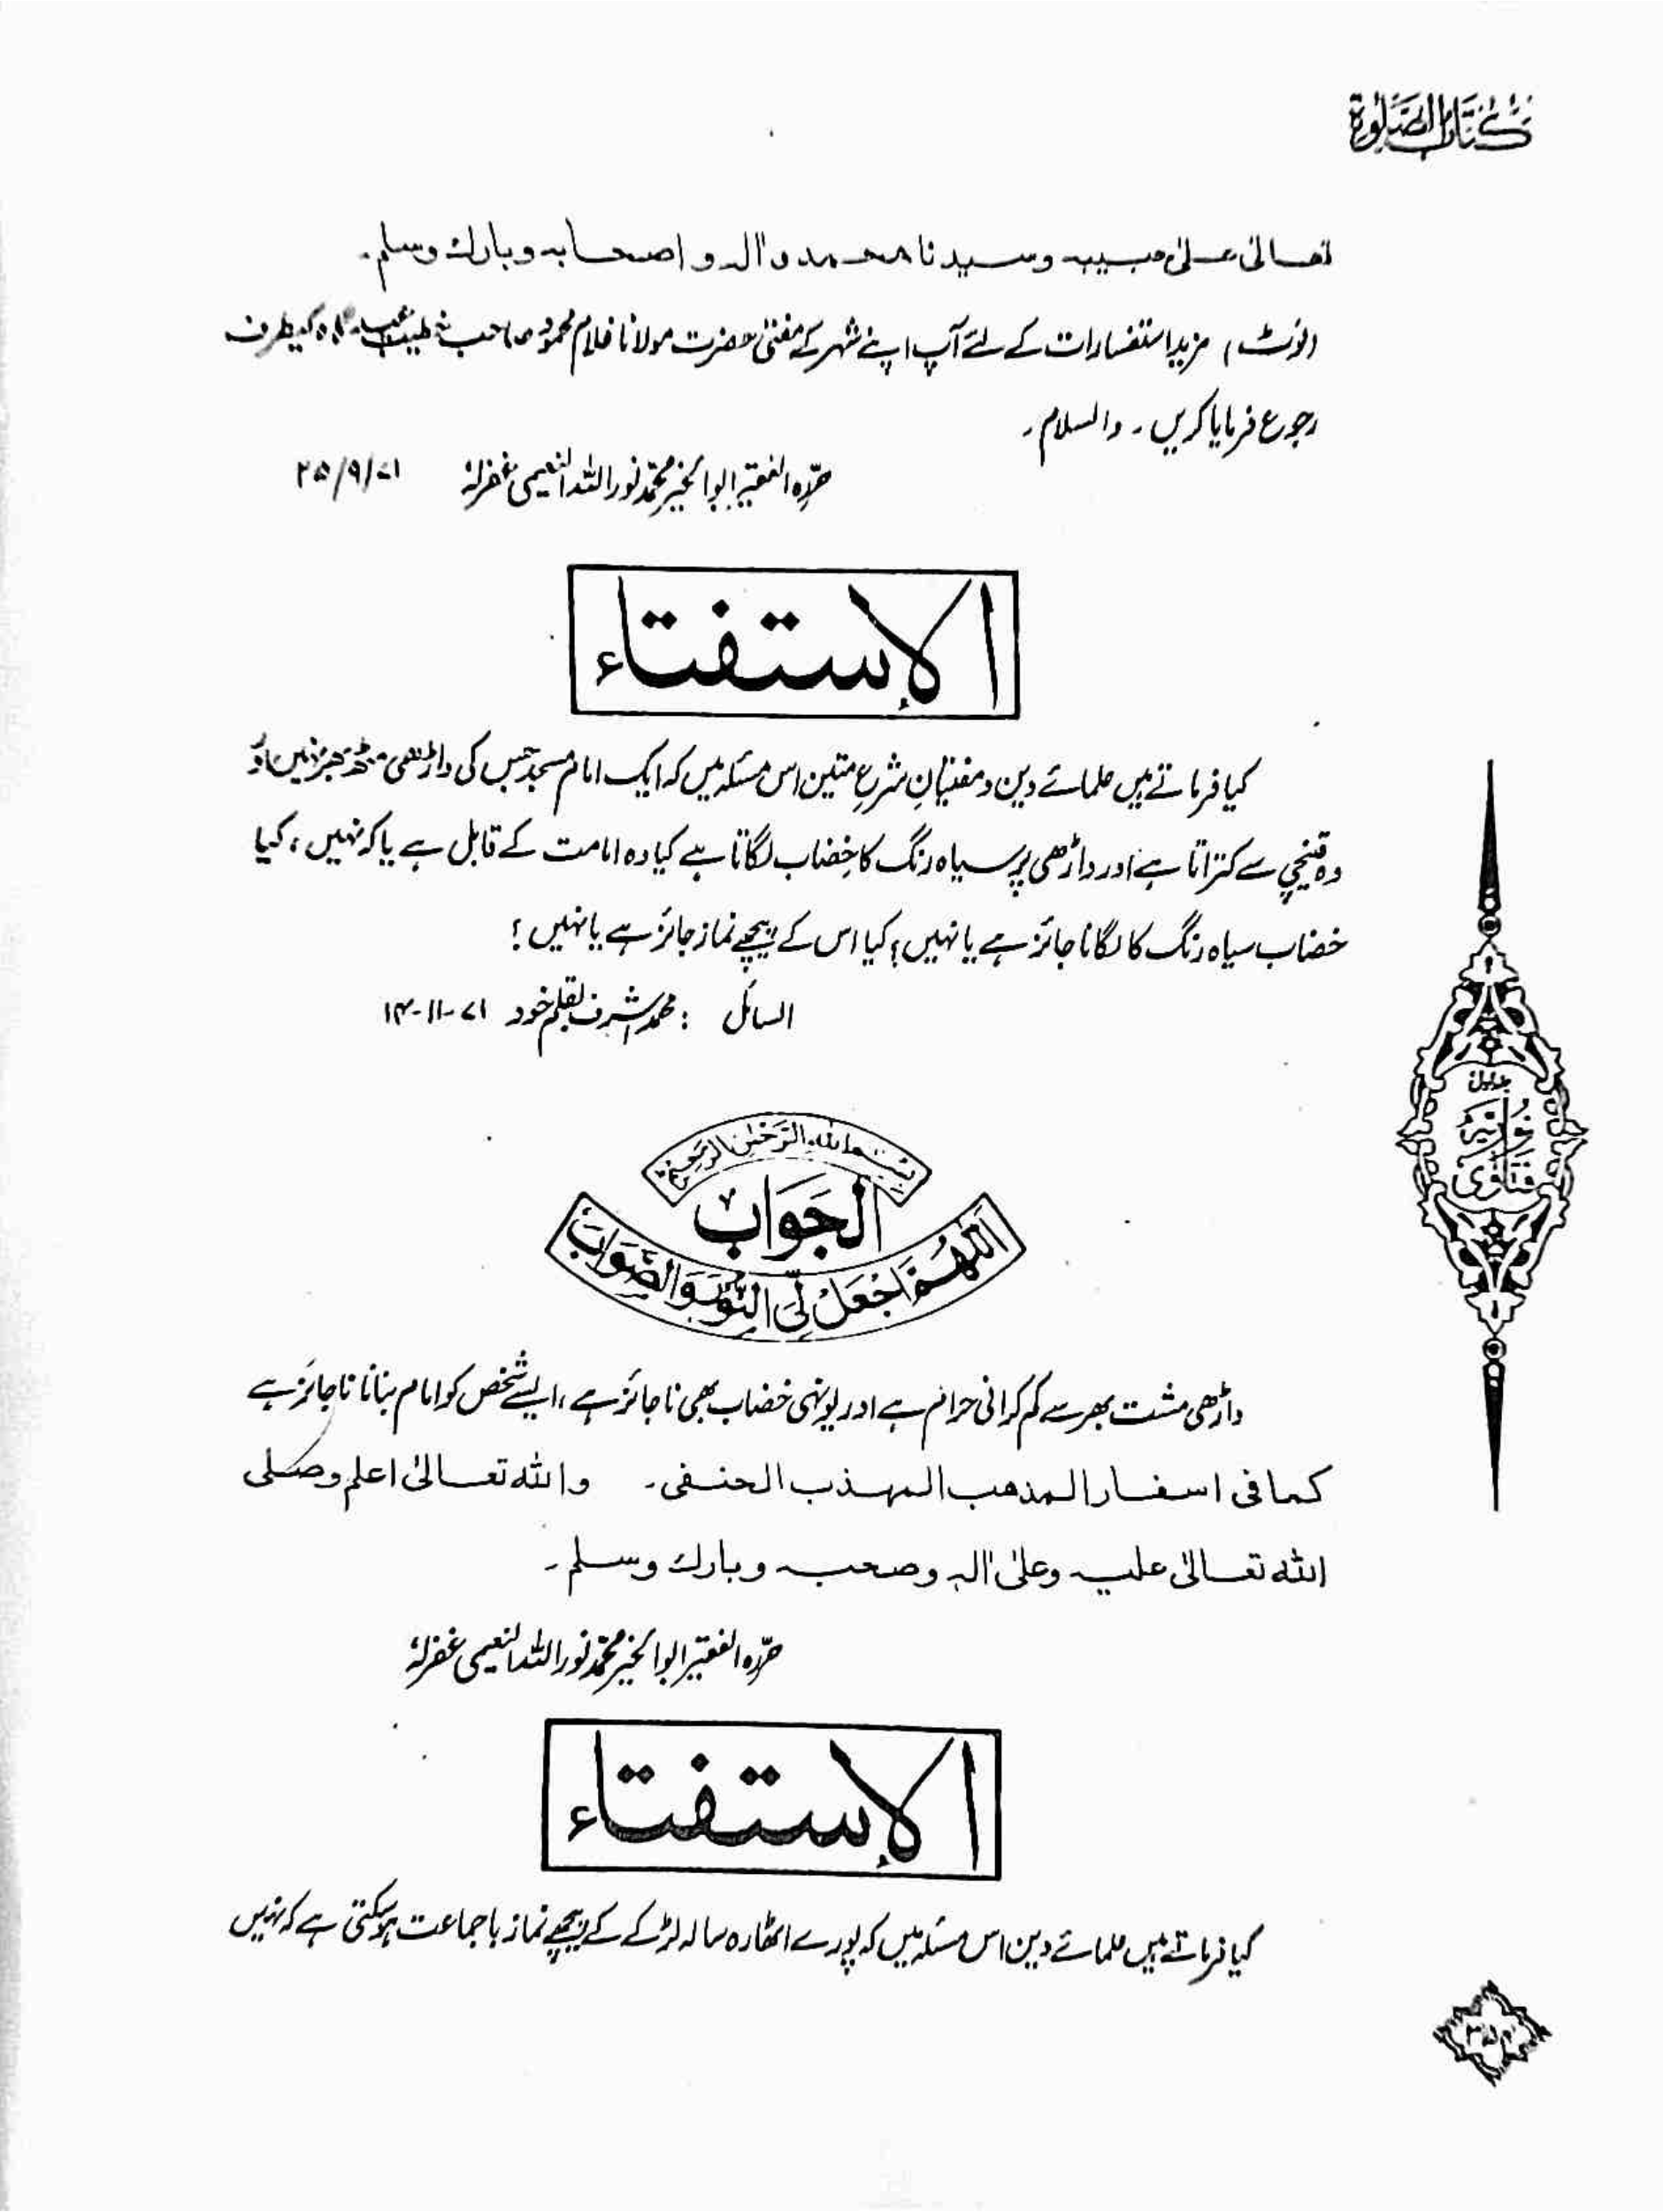 كتاب الصلوة
تعالیٰ علیٰ حبیبہ وسیدنا محمد واٰلہ واصحابہ وبارك وسلم۔
(نوٹ) مزید استفسارات کے لئے آپ اپنے شہر کے مفتی حضرت مولانا غلام محمود صاحب خطیب عیدگاہ کیطرف
رجوع فرمایا کریں۔ والسلام۔
حرّرہ الفقیر ابوالخیر محمّد نور اللہ النعیمی غفرلہٗ ۲۵/۹/۷۱
الإستفتاء
کیا فرماتے ہیں علمائے دین و مفتیانِ شرع متین اس مسئلہ میں کہ ایک امام مسجد جس کی داڑھی مٹھ بھر نہیں اور
وہ قینچی سے کتراتا ہے اور داڑھی پر سیاہ رنگ کا خِضاب لگاتا ہے کیا وہ امامت کے قابل ہے یا کہ نہیں ؛ کیا
خضاب سیاہ رنگ کا لگانا جائز ہے یا نہیں ؟ کیا اس کے پیچھے نماز جائز ہے یا نہیں ؟
السائل : محمد اشرف بقلم خود ۷۱-۱۱-۱۴
بسم الله الرحمن الرحيم
الجَوَابُ
اَللّٰهُمَّ اجْعَلْ لِّیَ النُّوْرَ وَالصَّوَابَ
داڑھی مشت بھر سے کم کرانی حرام ہے اور یونہی خضاب بھی ناجائز ہے، ایسے شخص کو امام بنانا ناجائز ہے
کما فی اسفار المذھب المہذب الحنفی۔ واللہ تعالیٰ اعلم وصلی
اللہ تعالیٰ علیہ وعلیٰ اٰلہٖ وصحبہ وبارك وسلم۔
حرّرہ الفقیر ابوالخیر محمّد نور اللہ النعیمی غفرلہٗ
الإستفتاء
کیا فرماتے ہیں علمائے دین اس مسئلہ میں کہ پورے اٹھارہ سالہ لڑکے کے پیچھے نماز باجماعت ہوسکتی ہے کہ نہیں
جلد اول
نوریہ
فتاوی